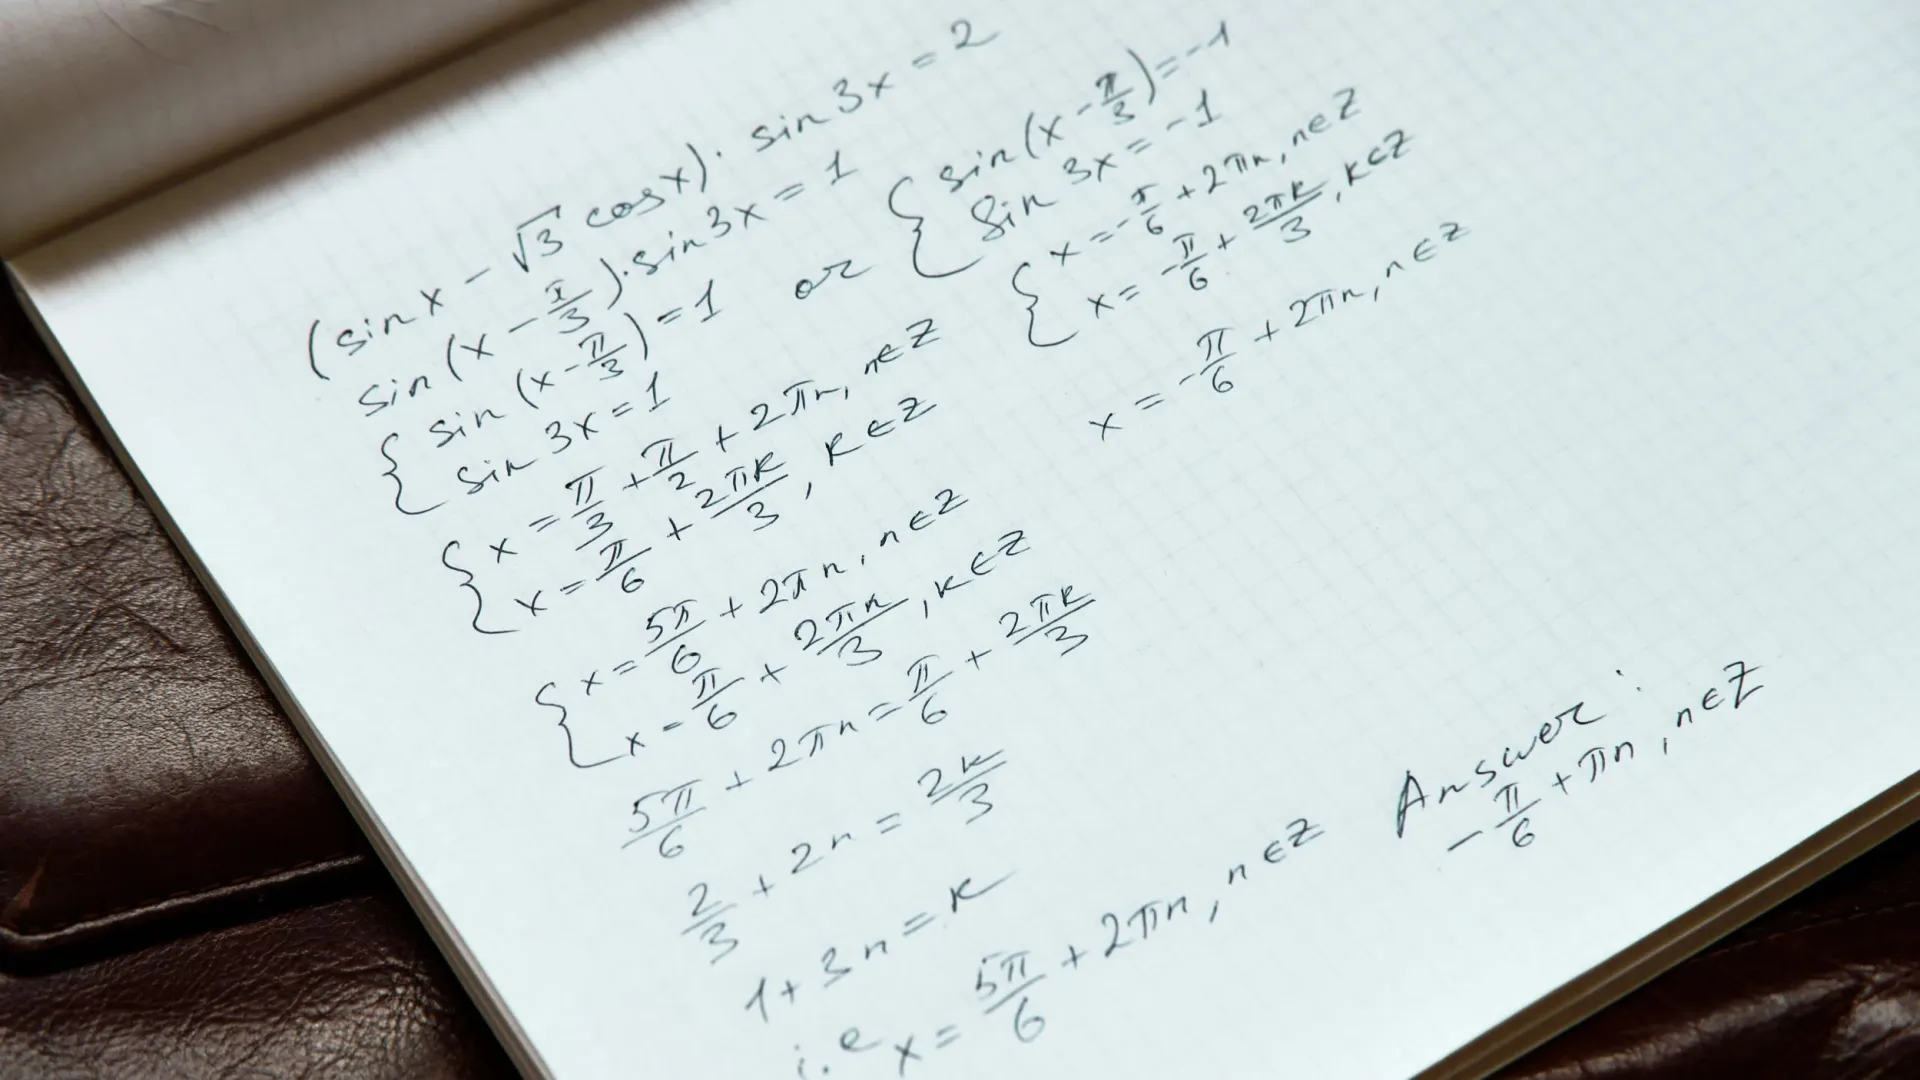 (sin x - √3 cos x) · sin 3x = 2
sin (x - π/3) · sin 3x = 1
{ sin (x - π/3) = 1
sin 3x = 1
or
{ sin (x - π/3) = -1
sin 3x = -1
{ x = π/3 + π/2 + 2πn, n ∈ Z
x = π/6 + 2πk/3, k ∈ Z
{ x = -π/6 + 2πn, n ∈ Z
x = -π/6 + 2πk/3, k ∈ Z
x = -π/6 + 2πn, n ∈ Z
{ x = 5π/6 + 2πn, n ∈ Z
x = π/6 + 2πk/3, k ∈ Z
5π/6 + 2πn = π/6 + 2πk/3
2/3 + 2n = 2k/3
1 + 3n = k
i.e x = 5π/6 + 2πn, n ∈ Z
Answer:
-π/6 + πn, n ∈ Z